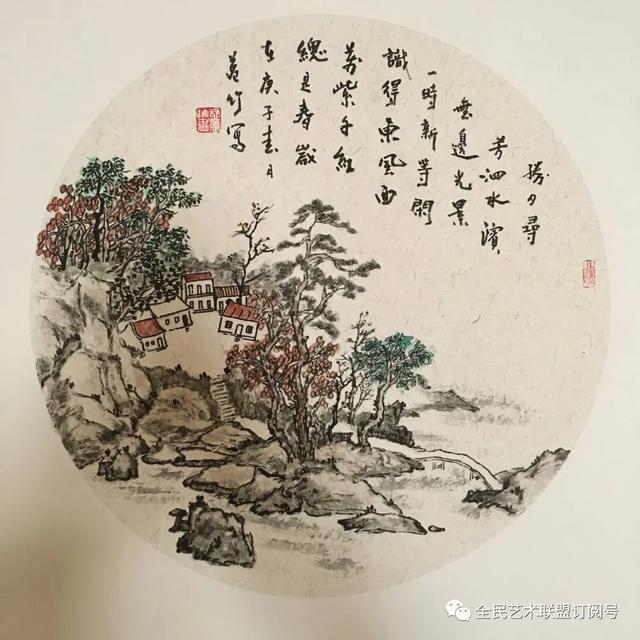 勝日尋
芳泗水濱
無邊光景
一時新等閑
識得東風面
萬紫千紅
總是春歲
在庚子春月
竹寫
全民艺术联盟订阅号